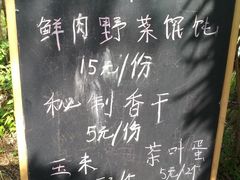 鲜肉野菜馄饨
15元/份
秘制香干
5元/份
玉米 茶叶蛋
5元/2个